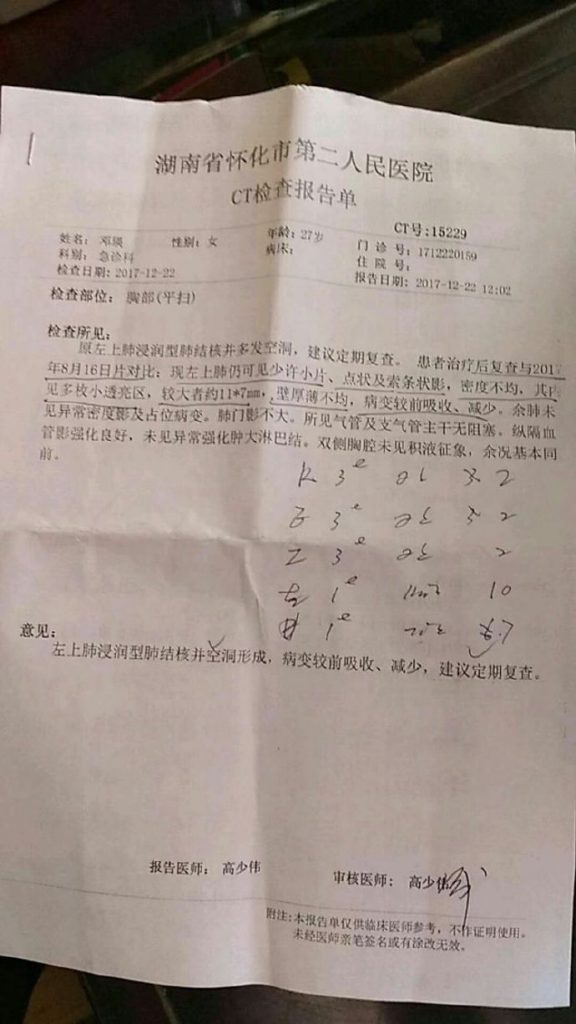 湖南省怀化市第二人民医院
CT检查报告单
CT号:15229
姓名: 邓瑛 性别: 女 年龄: 27岁 门诊号: 1712220159
科别: 急诊科 病床: 住院号:
检查日期: 2017-12-22 报告日期: 2017-12-22 12:02
检查部位: 胸部(平扫)
检查所见:
原左上肺浸润型肺结核并多发空洞，建议定期复查。患者治疗后复查与2017
年8月16日片对比: 现左上肺仍可见少许小片、点状及索条状影，密度不均，其内
见多枚小透亮区，较大者约11*7mm，壁厚薄不均，病变较前吸收、减少。余肺未
见异常密度影及占位病变。肺门影不大。所见气管及支气管主干无阻塞。纵隔血
管影强化良好，未见异常强化肿大淋巴结。双侧胸腔未见积液征象，余况基本同
前。
3 2
3 2
3 2
1 10
1
意见:
左上肺浸润型肺结核并空洞形成，病变较前吸收、减少，建议定期复查。
报告医师: 高少伟 审核医师: 高少伟
附注:本报告单仅供临床医师参考，不作证明使用。
未经医师亲笔签名或有涂改无效。